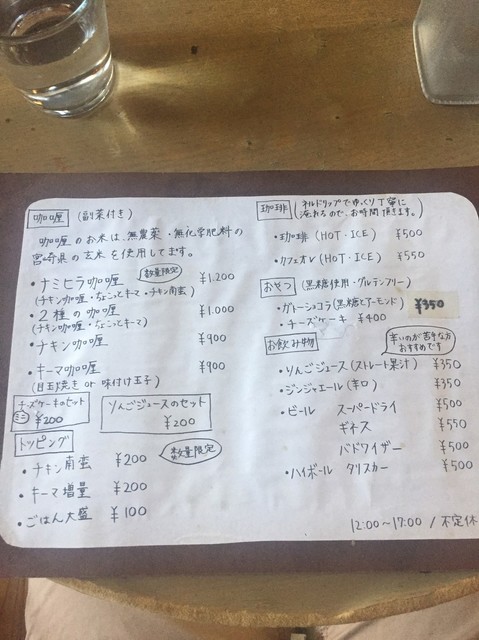 咖喱 (副菜付き)
咖喱のお米は、無農薬・無化学肥料の
宮崎県の玄米を使用してます。
数量限定
・ナミヒラ咖喱 ¥1.200
(チキン咖喱・ちょこっとキーマ・チキン南蛮)
・2種の咖喱 ¥1.000
(チキン咖喱・ちょこっとキーマ)
・チキン咖喱 ¥900
・キーマ咖喱 ¥900
(目玉焼き or 味付け玉子)
チーズケーキのセット
ミニ ¥200
りんごジュースのセット
¥200
トッピング
数量限定
・チキン南蛮 ¥200
・キーマ増量 ¥200
・ごはん大盛 ¥100
珈琲 (ネルドリップでゆっくり丁寧に
淹れるので、お時間頂きます。)
・珈琲 (HOT・ICE) ¥500
・カフェオレ (HOT・ICE) ¥550
おやつ (黒糖使用・グルテンフリー)
・ガトーショコラ(黒糖とアーモンド) ¥350
・チーズケーキ ¥400
お飲み物
辛いのが苦手な方
おすすめです
・りんごジュース (ストレート果汁) ¥350
・ジンジャエール (辛口) ¥350
・ビール スーパードライ ¥500
ギネス ¥550
バドワイザー ¥500
・ハイボール タリスカー ¥500
12:00～17:00 / 不定休